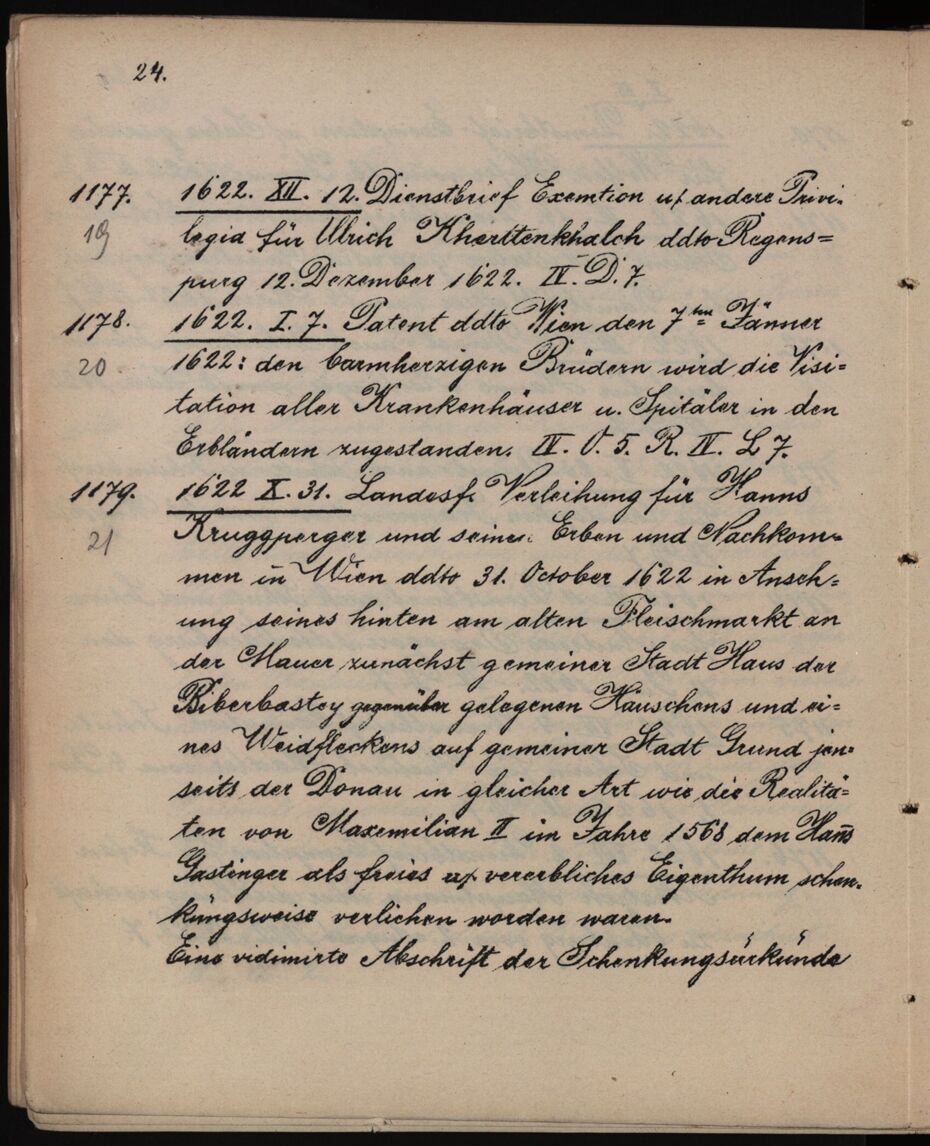 24.
1177. 1622. XII. 12. Dienstbrief Exemtion u/ andere Privi-
19 legia für Ulrich Kherttenkhalch ddto Regens=
purg 12. Dezember 1622. IV. D. 7.
1178. 1622. I. 7. Patent ddto Wien den 7ten Jänner
20 1622: den barmherzigen Brüdern wird die Visi=
tation aller Krankenhäuser u. Spitäler in den
Erbländern zugestanden. IV. O. 5. R. IV. L 7.
1179. 1622 X. 31. Landesf. Verleihung für Hanns
21 Kruggperger und seine Erben und Nachkom=
men in Wien ddto 31. October 1622 in Anseh=
ung seines hinten am alten Fleischmarkt an
der Mauer zunächst gemeiner Stadt Haus der
Biberbastey gegenüber gelegenen Häuschens und ei=
nes Weidfleckens auf gemeiner Stadt Grund jen=
seits der Donau in gleicher Art wie die Realitä=
ten von Maxemilian II im Jahre 1568 dem Hans
Gastinger als freies u/ vererbliches Eigenthum schen=
kungsweise verliehen worden waren.
Eine vidimirte Abschrift der Schenkungsurkunde